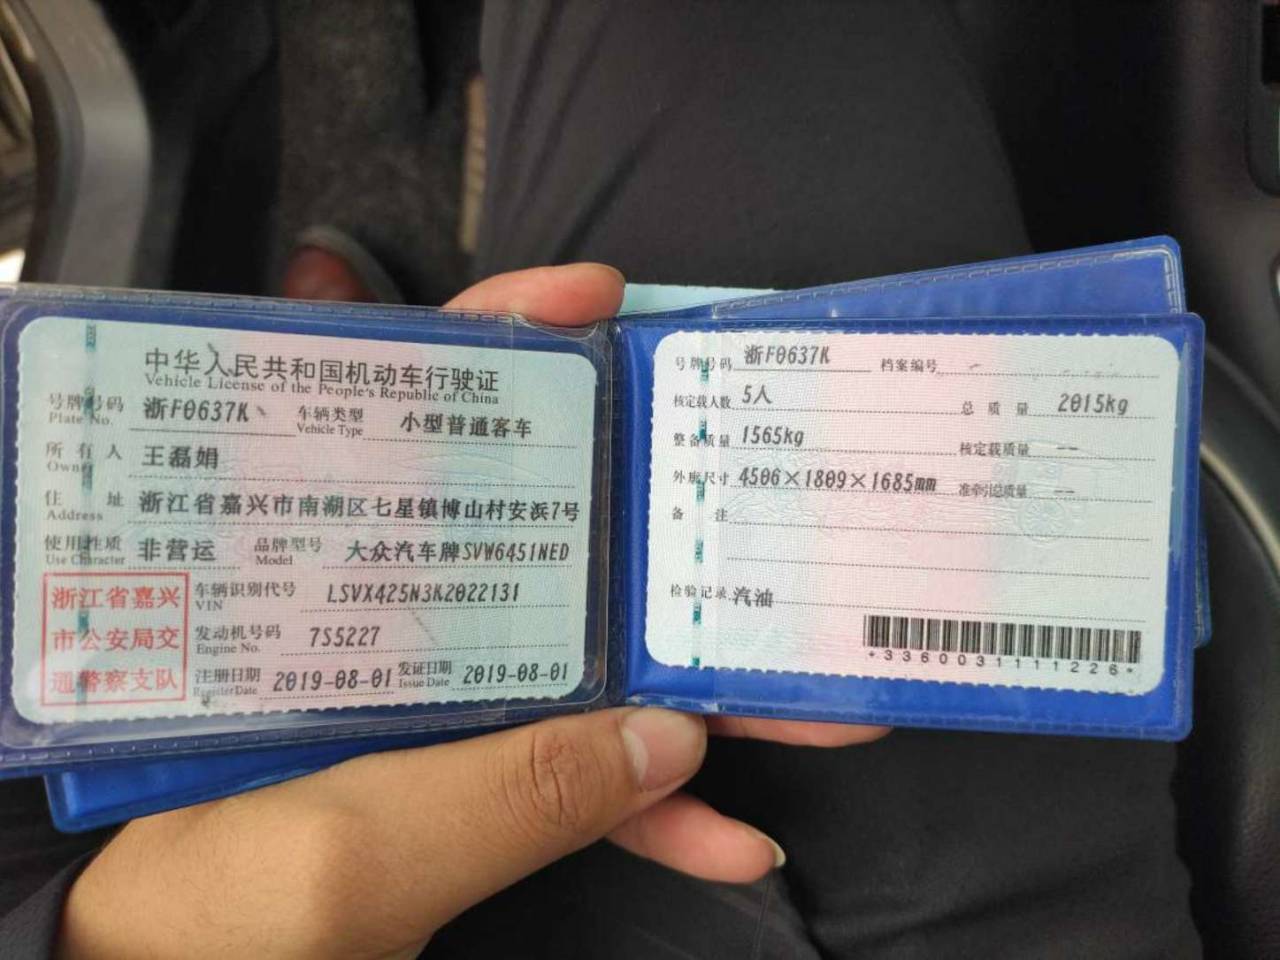 中华人民共和国机动车行驶证
Vehicle License of the People's Republic of China
号牌号码 浙F0637K 车辆类型 小型普通客车
Plate No. Vehicle Type
所有人 王磊娟
Owner
住址 浙江省嘉兴市南湖区七星镇博山村安浜7号
Address
使用性质 非营运 品牌型号 大众汽车牌SVW6451NED
Use Character Model
浙江省嘉兴
市公安局交
通警察支队
车辆识别代号 LSVX425N3K2022131
VIN
发动机号码 7S5227
Engine No.
注册日期 2019-08-01 发证日期 2019-08-01
Register Date Issue Date
号牌号码 浙F0637K 档案编号
核定载人数 5人 总质量 2015kg
整备质量 1565kg 核定载质量 --
外廓尺寸 4506×1809×1685mm 准牵引总质量 --
备注
检验记录 汽油
*3360031111226*